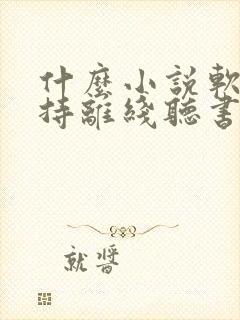 什麼小説軟
持離綫聽書
就醬